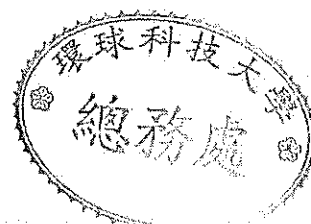 環球科技大學
總務處